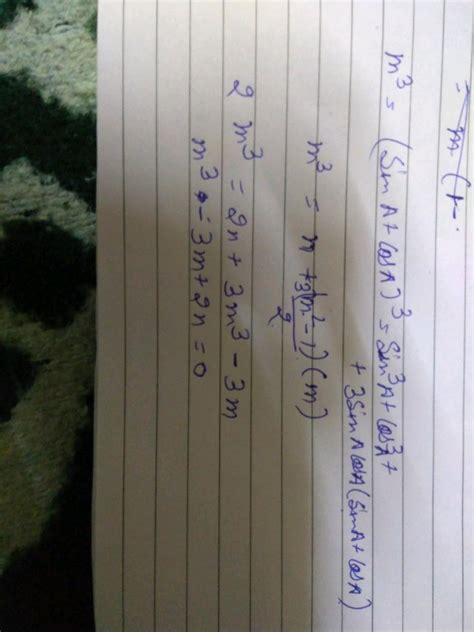 = m (
m³ = (Sin A + Cos A)³ = Sin³A + Cos³A +
+ 3 Sin A Cos A (Sin A + Cos A)
m³ = n + 3(m² - 1)/2 (m)
2 m³ = 2n + 3m³ - 3m
m³ - 3m + 2n = 0